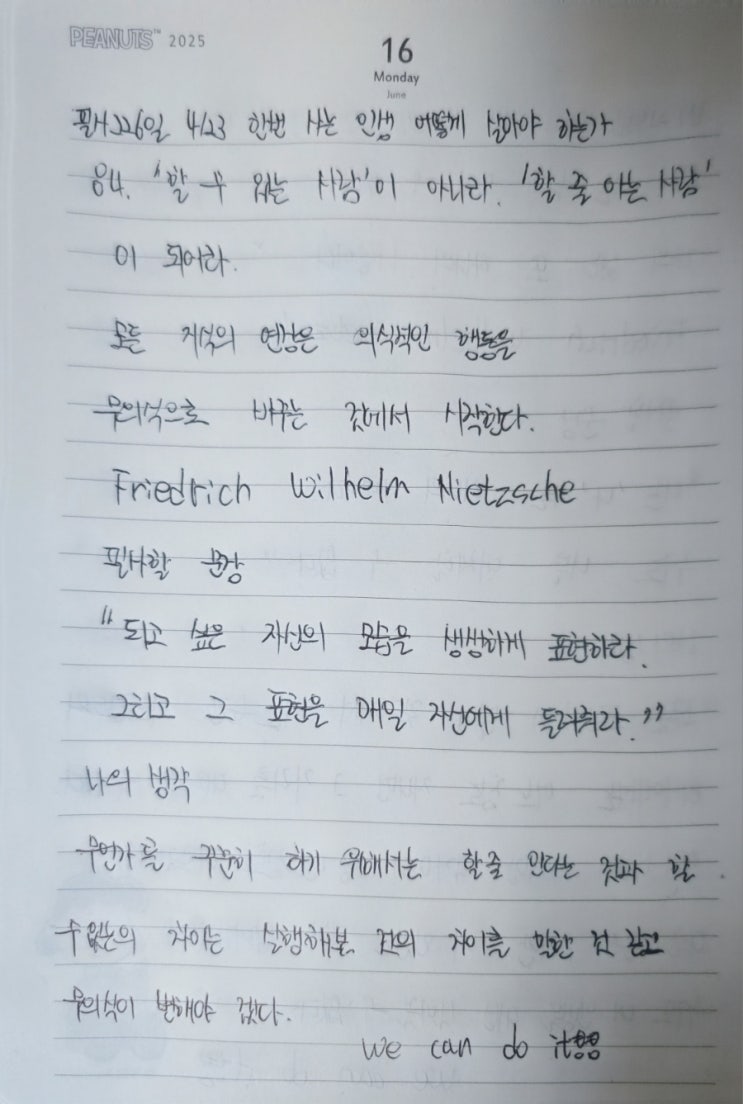 PEANUTS™ 2025
16
Monday
June
필사226일 4/23 한번 사는 인생 어떻게 살아야 하는가
84. '할 수 있는 사람'이 아니라. '할 줄 아는 사람'
이 되어라.
모든 지식의 연상은 의식적인 행동을
무의식으로 바꾸는 것에서 시작한다.
Friedrich Wilhelm Nietzsche
필사할 문장
"되고 싶은 자신의 모습을 생생하게 표현하라.
그리고 그 표현을 매일 자신에게 들려줘라."
나의 생각
무언가를 꾸준히 하기 위해서는 할줄 안다는 것과 할
수 없는의 차이는 실행해본 것의 차이를 말한 것 같고
무의식이 변해야 겠다.
we can do it